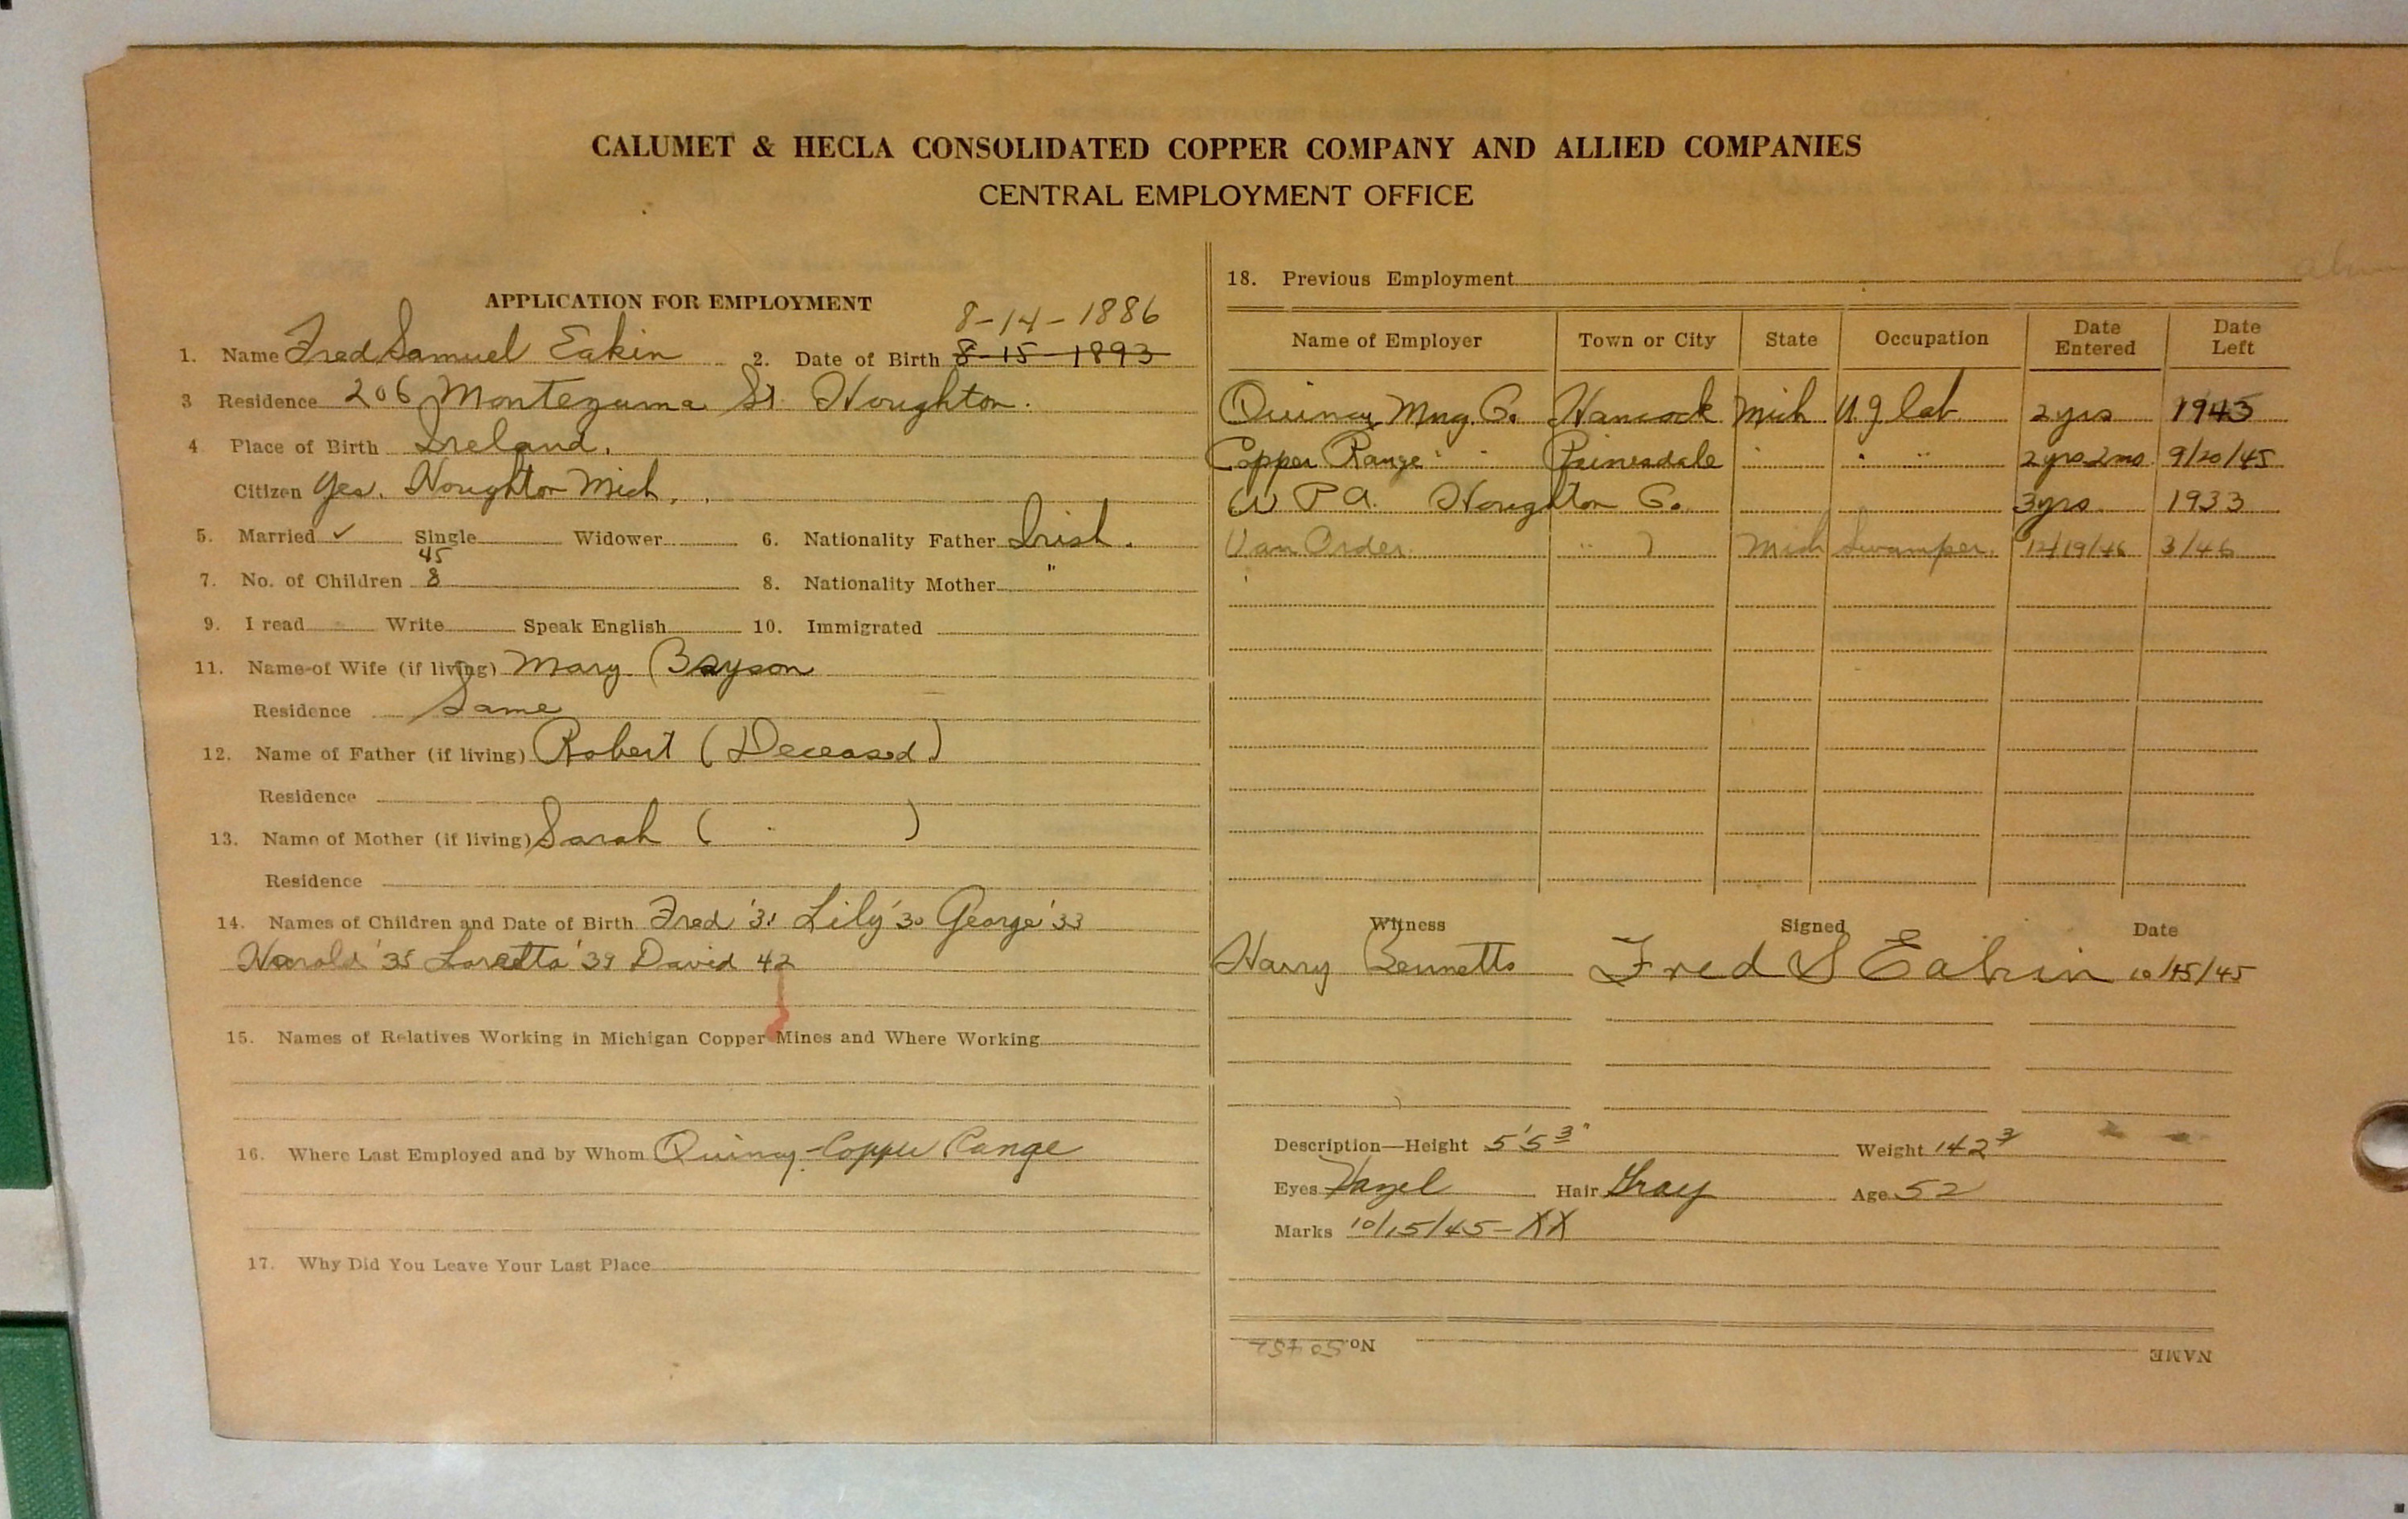 CALUMET & HECLA CONSOLIDATED COPPER COMPANY AND ALLIED COMPANIES
CENTRAL EMPLOYMENT OFFICE
APPLICATION FOR EMPLOYMENT
8-14-1886
1. Name Fred Samuel Eakin 2. Date of Birth 8-15-1893
3 Residence 206 Montezuma St. Houghton.
4 Place of Birth Ireland.
Citizen Yes. Houghton Mich.
5. Married ✓ Single Widower 6. Nationality Father Irish.
45
7. No. of Children 8 8. Nationality Mother "
9. I read Write Speak English 10. Immigrated
11. Name of Wife (if living) Mary Bayson
Residence Same
12. Name of Father (if living) Robert (Deceased)
Residence
13. Name of Mother (if living) Sarah ( " )
Residence
14. Names of Children and Date of Birth Fred '31 Lily '30 George '33
Harold '35 Loretta '39 David 42
15. Names of Relatives Working in Michigan Copper Mines and Where Working
16. Where Last Employed and by Whom Quincy-Copper Range
17. Why Did You Leave Your Last Place
18. Previous Employment
Name of Employer Town or City State Occupation Date Entered Date Left
Quincy Mng. Co. Hancock Mich U.g. lab 2 yrs 1943
Copper Range " " Painesdale " " " 2 yrs 2 mo. 9/20/45
W P A. Houghton Co. 3 yrs 1933
Van Order " " Mich Swamper. 12/19/46 3/46
Witness Signed Date
Harry Bennetts Fred S Eakin 10/15/45
Description—Height 5'5 3" Weight 142 3/
Eyes Hazel Hair Gray Age 52
Marks 10/15/45-XX
No. 50 452 NAME